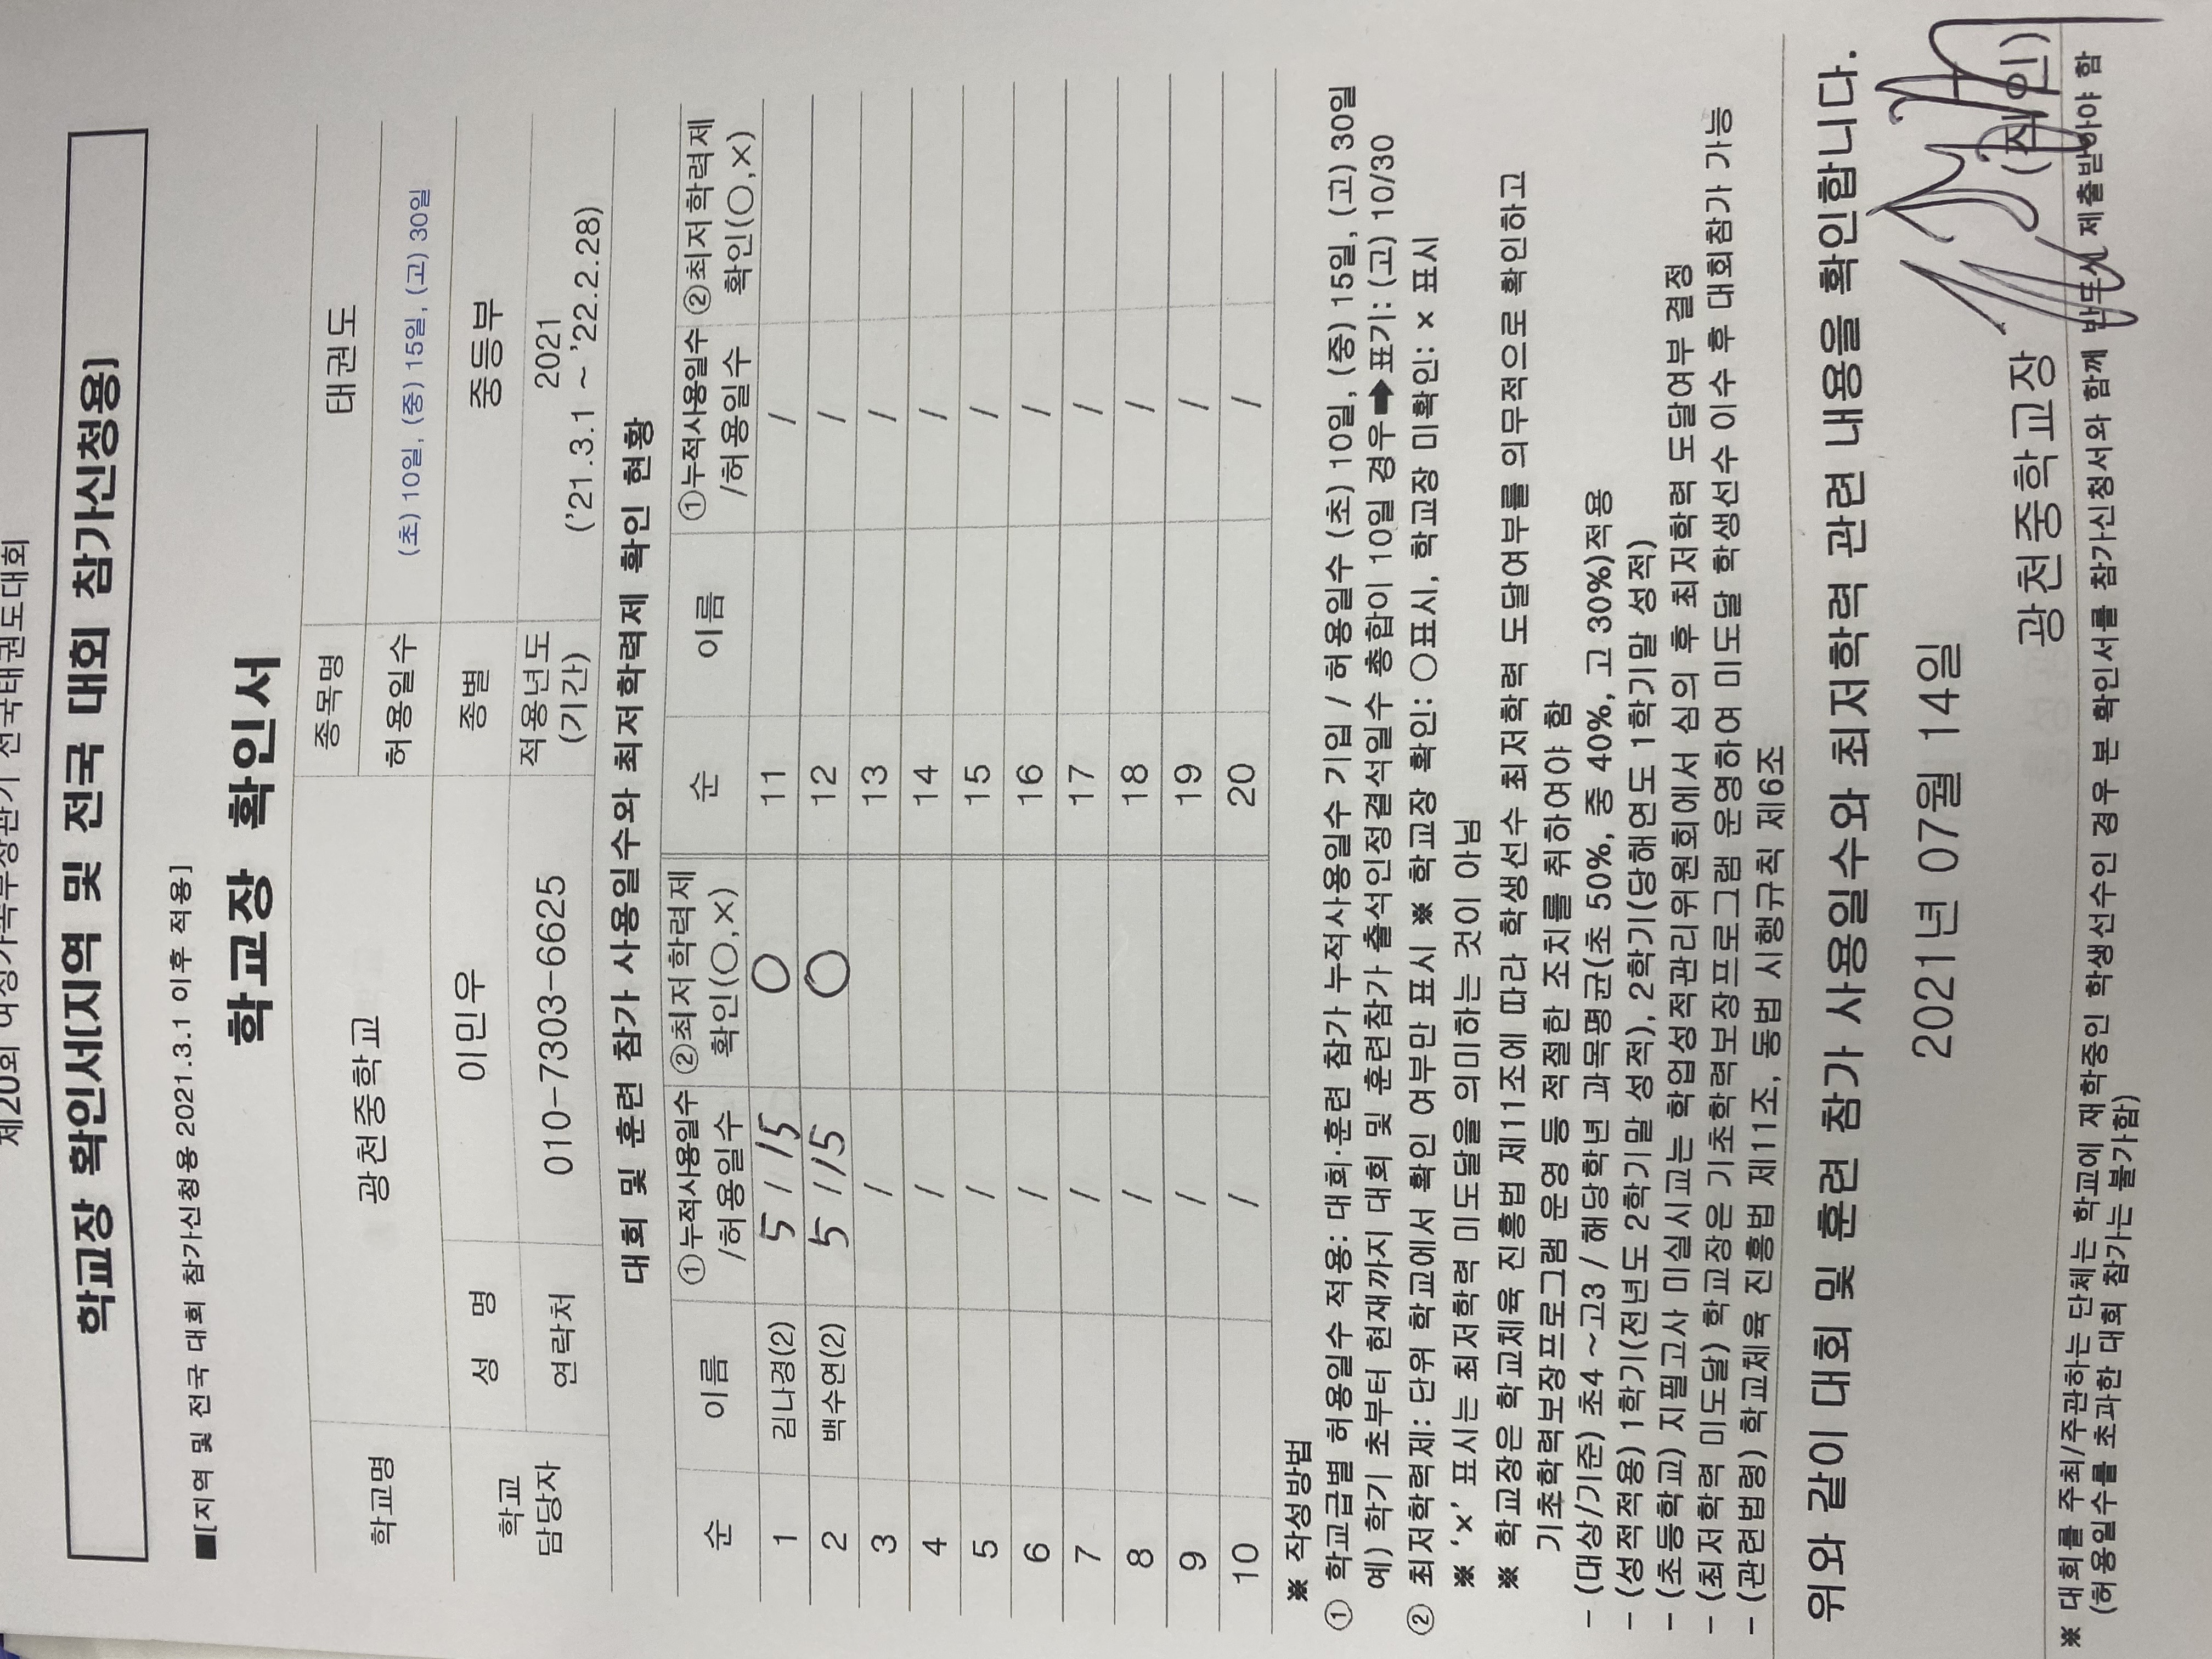 제20회 여성가족부장관기 전국태권도대회
학교장 확인서[지역 및 전국 대회 참가신청용]
■[지역 및 전국 대회 참가신청용 2021.3.1 이후 적용]
학교장 확인서
학교명 광천중학교 종목명 태권도
허용일수 (초) 10일, (중) 15일, (고) 30일
학교 담당자 성 명 이민우 종별 중등부
연락처 010-7303-6625 적용년도 (기간) 2021
('21.3.1 ~ '22.2.28)
대회 및 훈련 참가 사용일수와 최저학력제 확인 현황
순 이름 ①누적사용일수 ②최저학력제 순 이름 ①누적사용일수 ②최저학력제
/허용일수 확인(○,×) /허용일수 확인(○,×)
1 김나경(2) 5 / 15 ○ 11 /
2 백수연(2) 5 / 15 ○ 12 /
3 / 13 /
4 / 14 /
5 / 15 /
6 / 16 /
7 / 17 /
8 / 18 /
9 / 19 /
10 / 20 /
※ 작성방법
① 학교급별 허용일수 적용: 대회·훈련 참가 누적사용일수 기입 / 허용일수 (초) 10일, (중) 15일, (고) 30일
예) 학기 초부터 현재까지 대회 및 훈련참가 출석인정결석일수 총합이 10일 경우➡표기: (고) 10/30
② 최저학력제: 단위 학교에서 확인 여부만 표시 ※ 학교장 확인: ○표시, 학교장 미확인: × 표시
※ '×' 표시는 최저학력 미도달을 의미하는 것이 아님
※ 학교장은 학교체육 진흥법 제11조에 따라 학생선수 최저학력 도달여부를 의무적으로 확인하고
기초학력보장프로그램 운영 등 적절한 조치를 취하여야 함
- (대상/기준) 초4 ~고3 / 해당학년 과목평균(초 50%, 중 40%, 고 30%)적용
- (성적적용) 1학기(전년도 2학기말 성적), 2학기(당해연도 1학기말 성적)
- (초등학교) 지필고사 미실시교는 학업성적관리위원회에서 심의 후 최저학력 도달여부 결정
- (최저학력 미도달) 학교장은 기초학력보장프로그램 운영하여 미도달 학생선수 이수 후 대회참가 가능
- (관련법령) 학교체육 진흥법 제11조, 동법 시행규칙 제6조
위와 같이 대회 및 훈련 참가 사용일수와 최저학력 관련 내용을 확인합니다.
2021년 07월 14일
광천중학교장 (직인)
※ 대회를 주최/주관하는 단체는 학교에 재학중인 학생선수인 경우 본 확인서를 참가신청서와 함께 반드시 제출받아야 함
(허용일수를 초과한 대회 참가는 불가함)